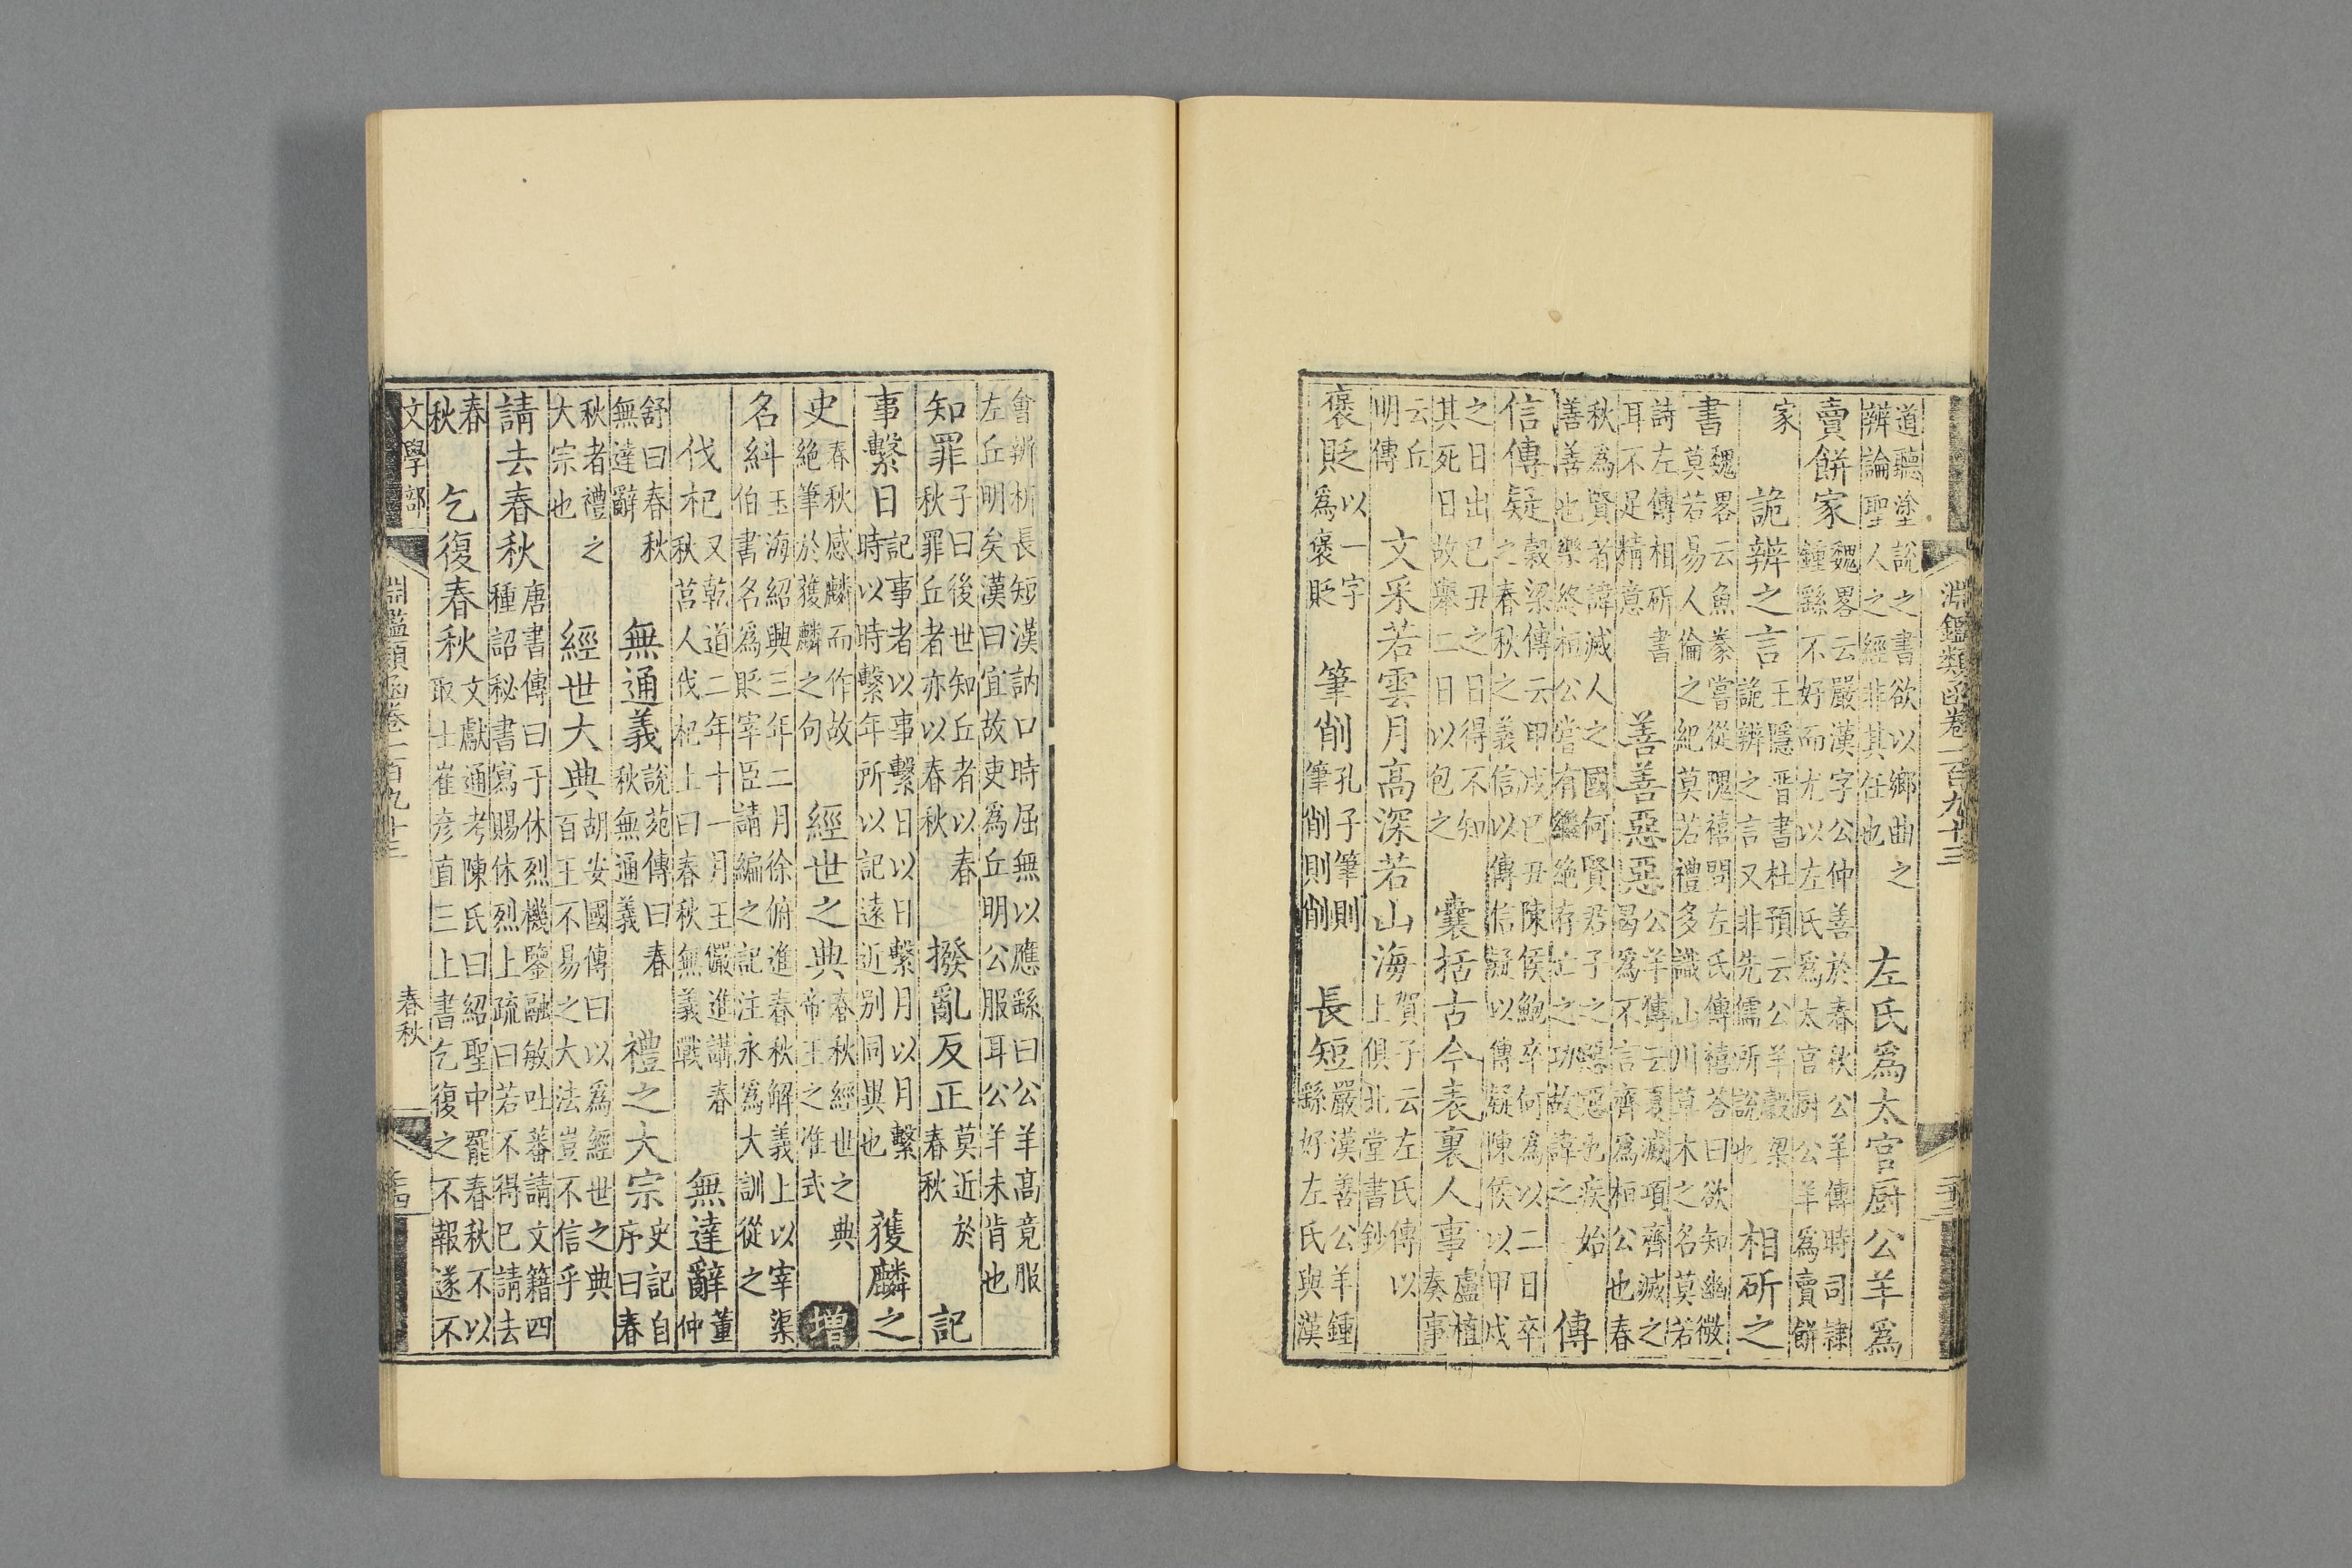 淵鑑類函卷一百九十三
道聽塗說之書欲以鄉曲之辨論聖人之經非其任也 左氏爲太官厨公羊爲
賣餅家 魏畧云嚴漢字公仲善於春秋公羊傳時司隸鍾繇不好而尤以左氏爲太官厨公羊爲賣餅
家 詭辨之言 王隱晉書杜預云公羊穀梁詭辨之言又非先儒所說也 相斫之
書 魏畧云魚豢嘗從隗禧問左氏傳禧荅曰欲知幽微莫若易人倫之紀莫若禮多識山川草木之名莫若
詩左傳相斫書耳不足精意 善善惡惡 公羊傳云夏滅項齊滅之曷爲不言齊爲桓公也春
秋爲賢者諱滅人之國何賢君子之惡惡也疾始善善也樂終桓公嘗有繼絶存亡之功故諱之 傳
信傳疑 穀梁傳云甲戌己丑陳侯鮑卒何爲以二日卒之春秋之義信以傳信疑以傳疑陳侯以甲戌
之日出已丑之日得不知其死日故舉二日以包之 囊括古今表裏人事 盧植奏事
云丘明傳 文采若雲月高深若山海 賀子云左氏傳以上俱北堂書鈔
褒貶 以一字爲褒貶 筆削 孔子筆則筆削則削 長短 嚴漢善公羊鍾繇好左氏與漢
會辨析長短漢訥口時屈無以應繇曰公羊高竟服左丘明矣漢曰宜故吏爲丘明公服耳公羊未肯也
知罪 子曰後世知丘者以春秋罪丘者亦以春秋 撥亂反正 莫近於春秋 記
事繫日 記事者以事繫日以日繫月以月繫時以時繫年所以記遠近别同異也 獲麟之
史 春秋感麟而作故絶筆於獲麟之句 經世之典 春秋經世之典帝王之准式 增
名糾 玉海紹興三年二月徐俯進春秋解義上以宰渠伯書名爲貶宰臣請編之記注永爲大訓從之
伐杞 又乾道二年十一月王儼進講春秋莒人伐杞上曰春秋無義戰 無達辭 董仲
舒曰春秋無達辭 無通義 說苑傳曰春秋無通義 禮之大宗 史記自序曰春
秋者禮之大宗也 經世大典 胡安國傳曰以爲經世之典百王不易之大法豈不信乎
請去春秋 唐書傳曰于休烈機鑒融敏吐蕃請文籍四種詔秘書寫賜休烈上疏曰若不得已請去
春秋 乞復春秋 文獻通考陳氏曰紹聖中罷春秋不以取士崔彦直三上書乞復之不報遂不
文學部 淵鑑類函卷一百九十三 春秋